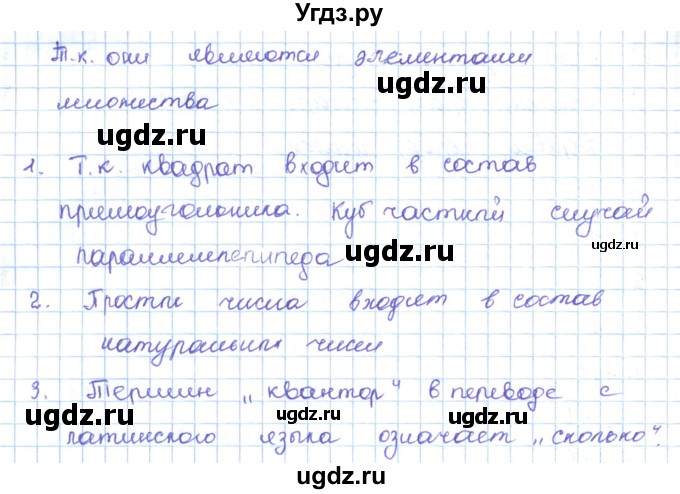 Угдз.ру
Т.к. они являются элементами
ugdz.ru
множества
ugdz.ru
1. Т.к. квадрат входит в состав
прямоугольника. Куб частный случай
ugdz.ru
ugdz.ru
параллелепипеда
2. Простые числа входят в состав
ugdz.ru
натуральных чисел
3. Термин „квантор“ в переводе с
ugdz.ru
ugdz.ru
ugdz.ru
латинского языка означает „сколько“.
ugdz.ru